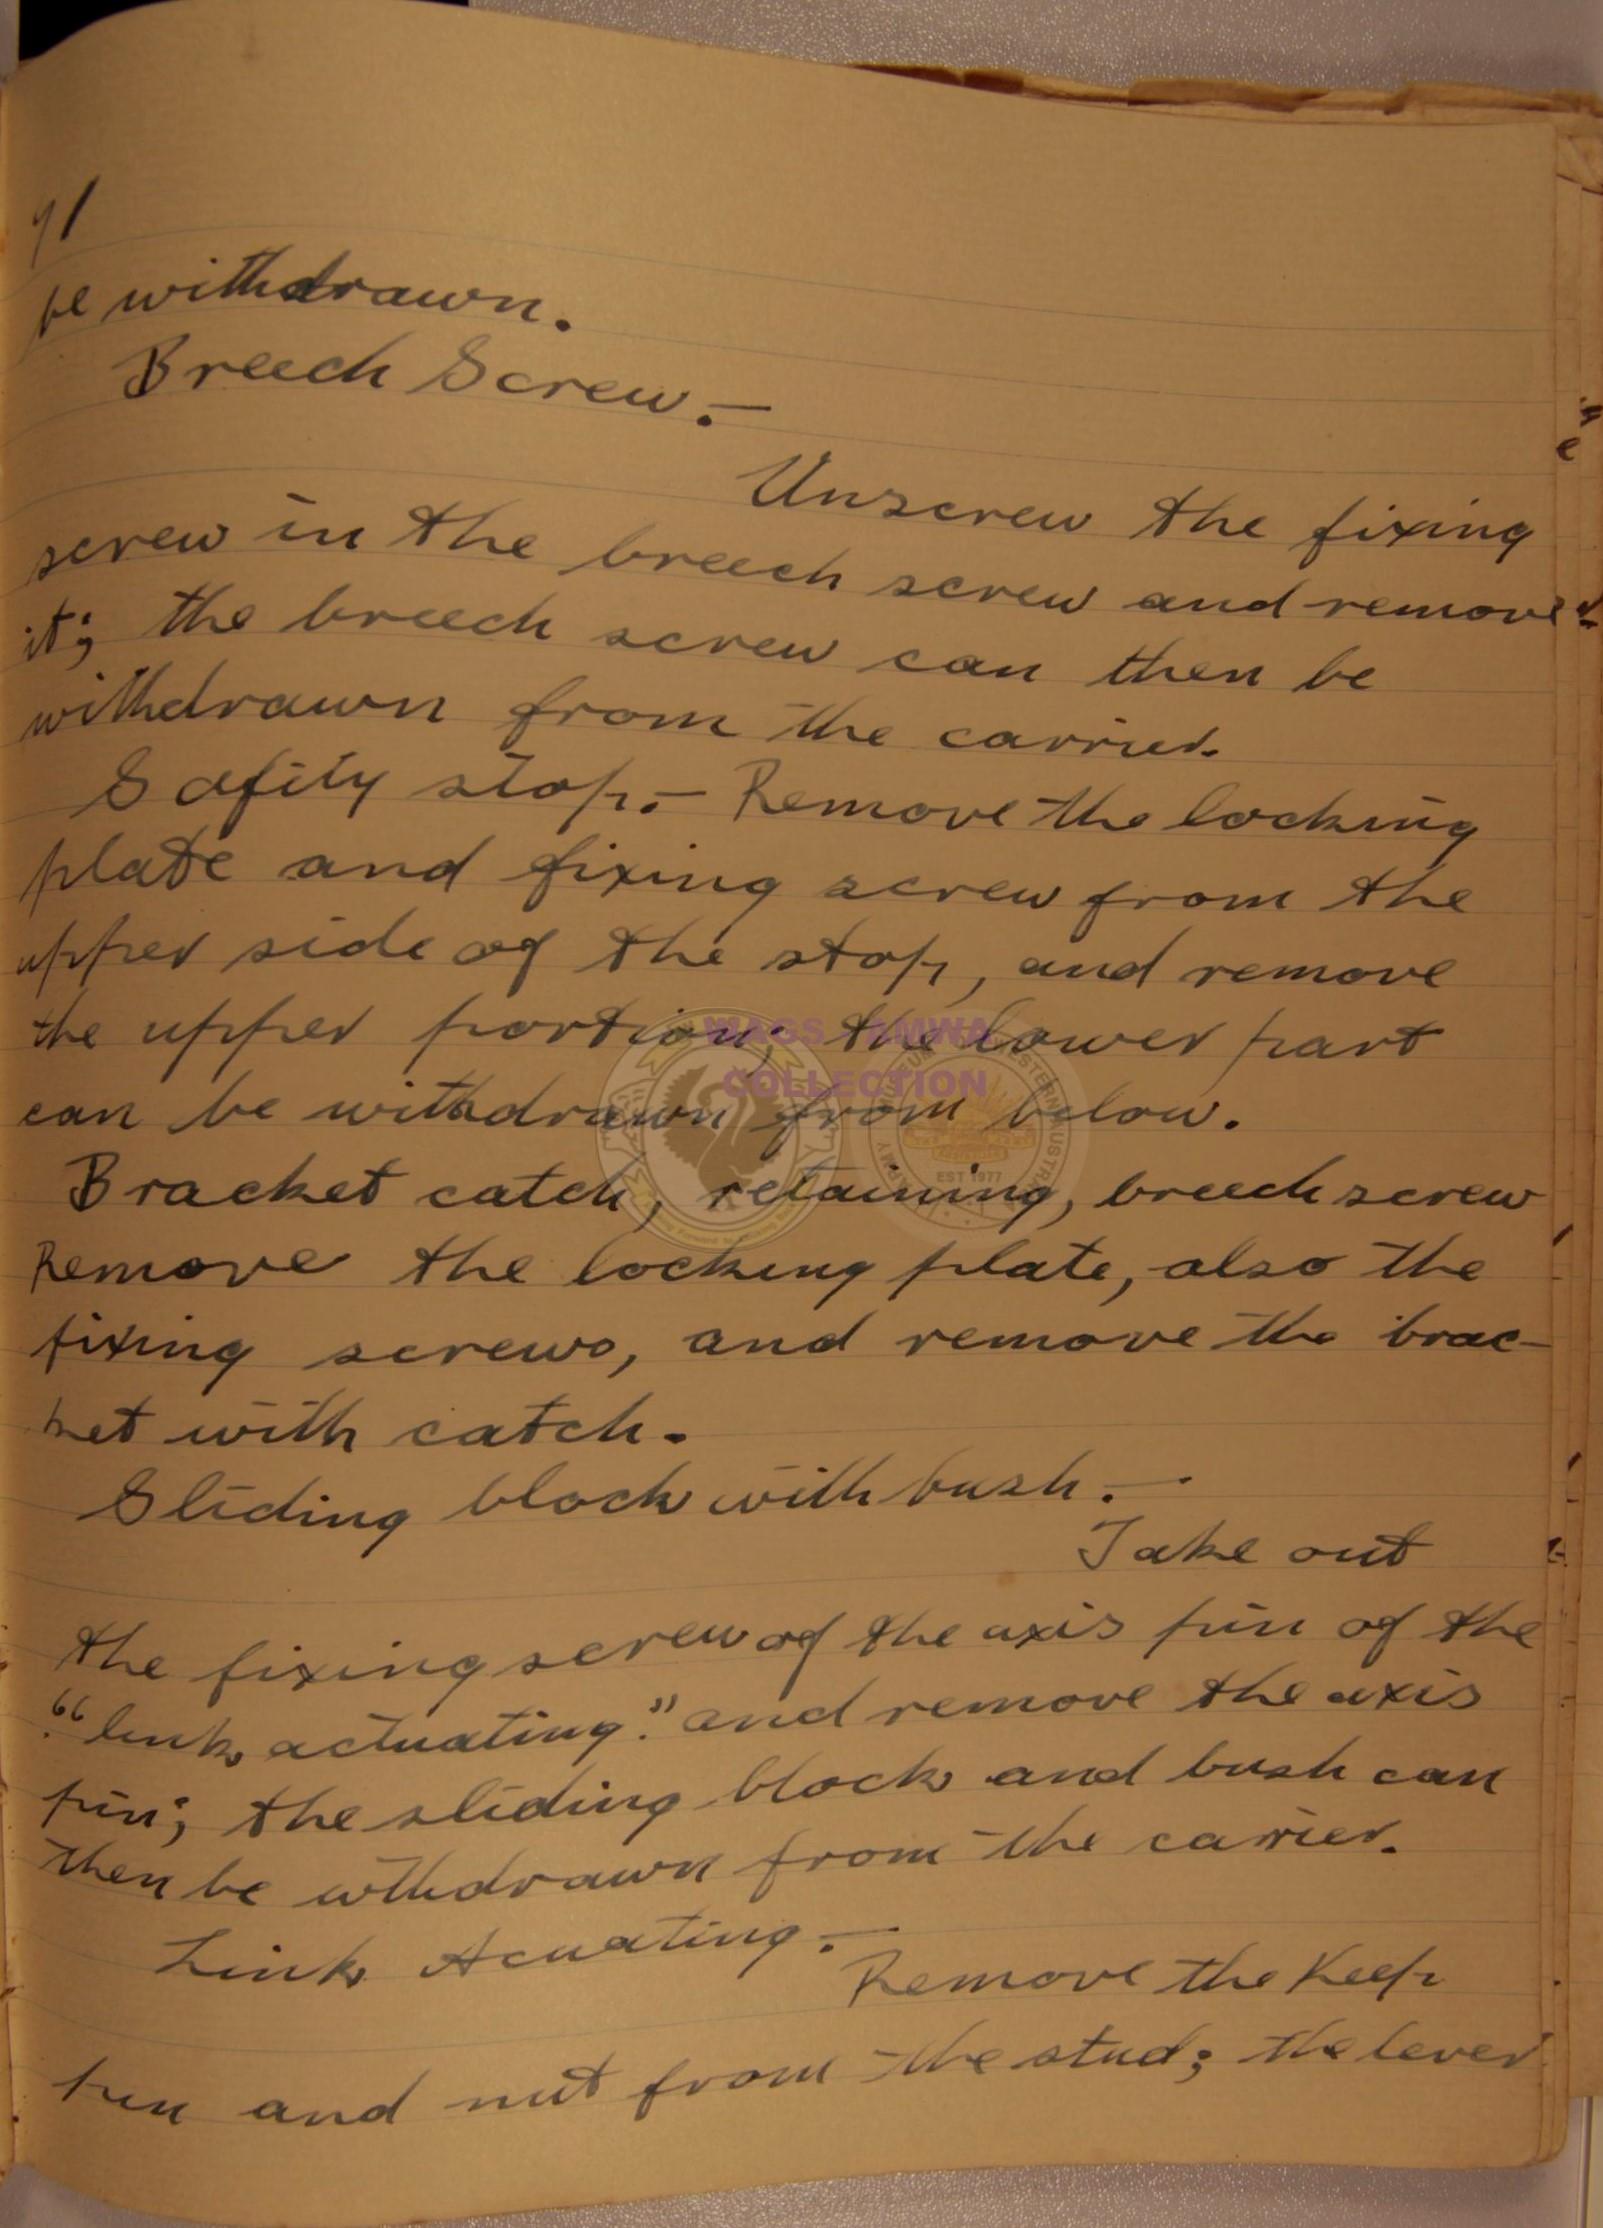 91
be withdrawn.
Breech Screw.—
Unscrew the fixing
screw in the breech screw and remove
it; the breech screw can then be
withdrawn from the carrier.
Safity stop.— Remove the locking
plate and fixing screw from the
upper side of the stop, and remove
the upper portion; the lower part
can be withdrawn from below.
Bracket catch, retaining, breech screw
Remove the locking plate, also the
fixing screws, and remove the brac-
ket with catch.
Sliding block with bush.—
Take out
the fixing screw of the axis pin of the
"link, actuating." and remove the axis
pin; the sliding block and bush can
then be withdrawn from the carrier.
Link Acuating.—
Remove the Keep
pin and nut from the stud; the lever
WAGS - AMWA
COLLECTION
EST 1977